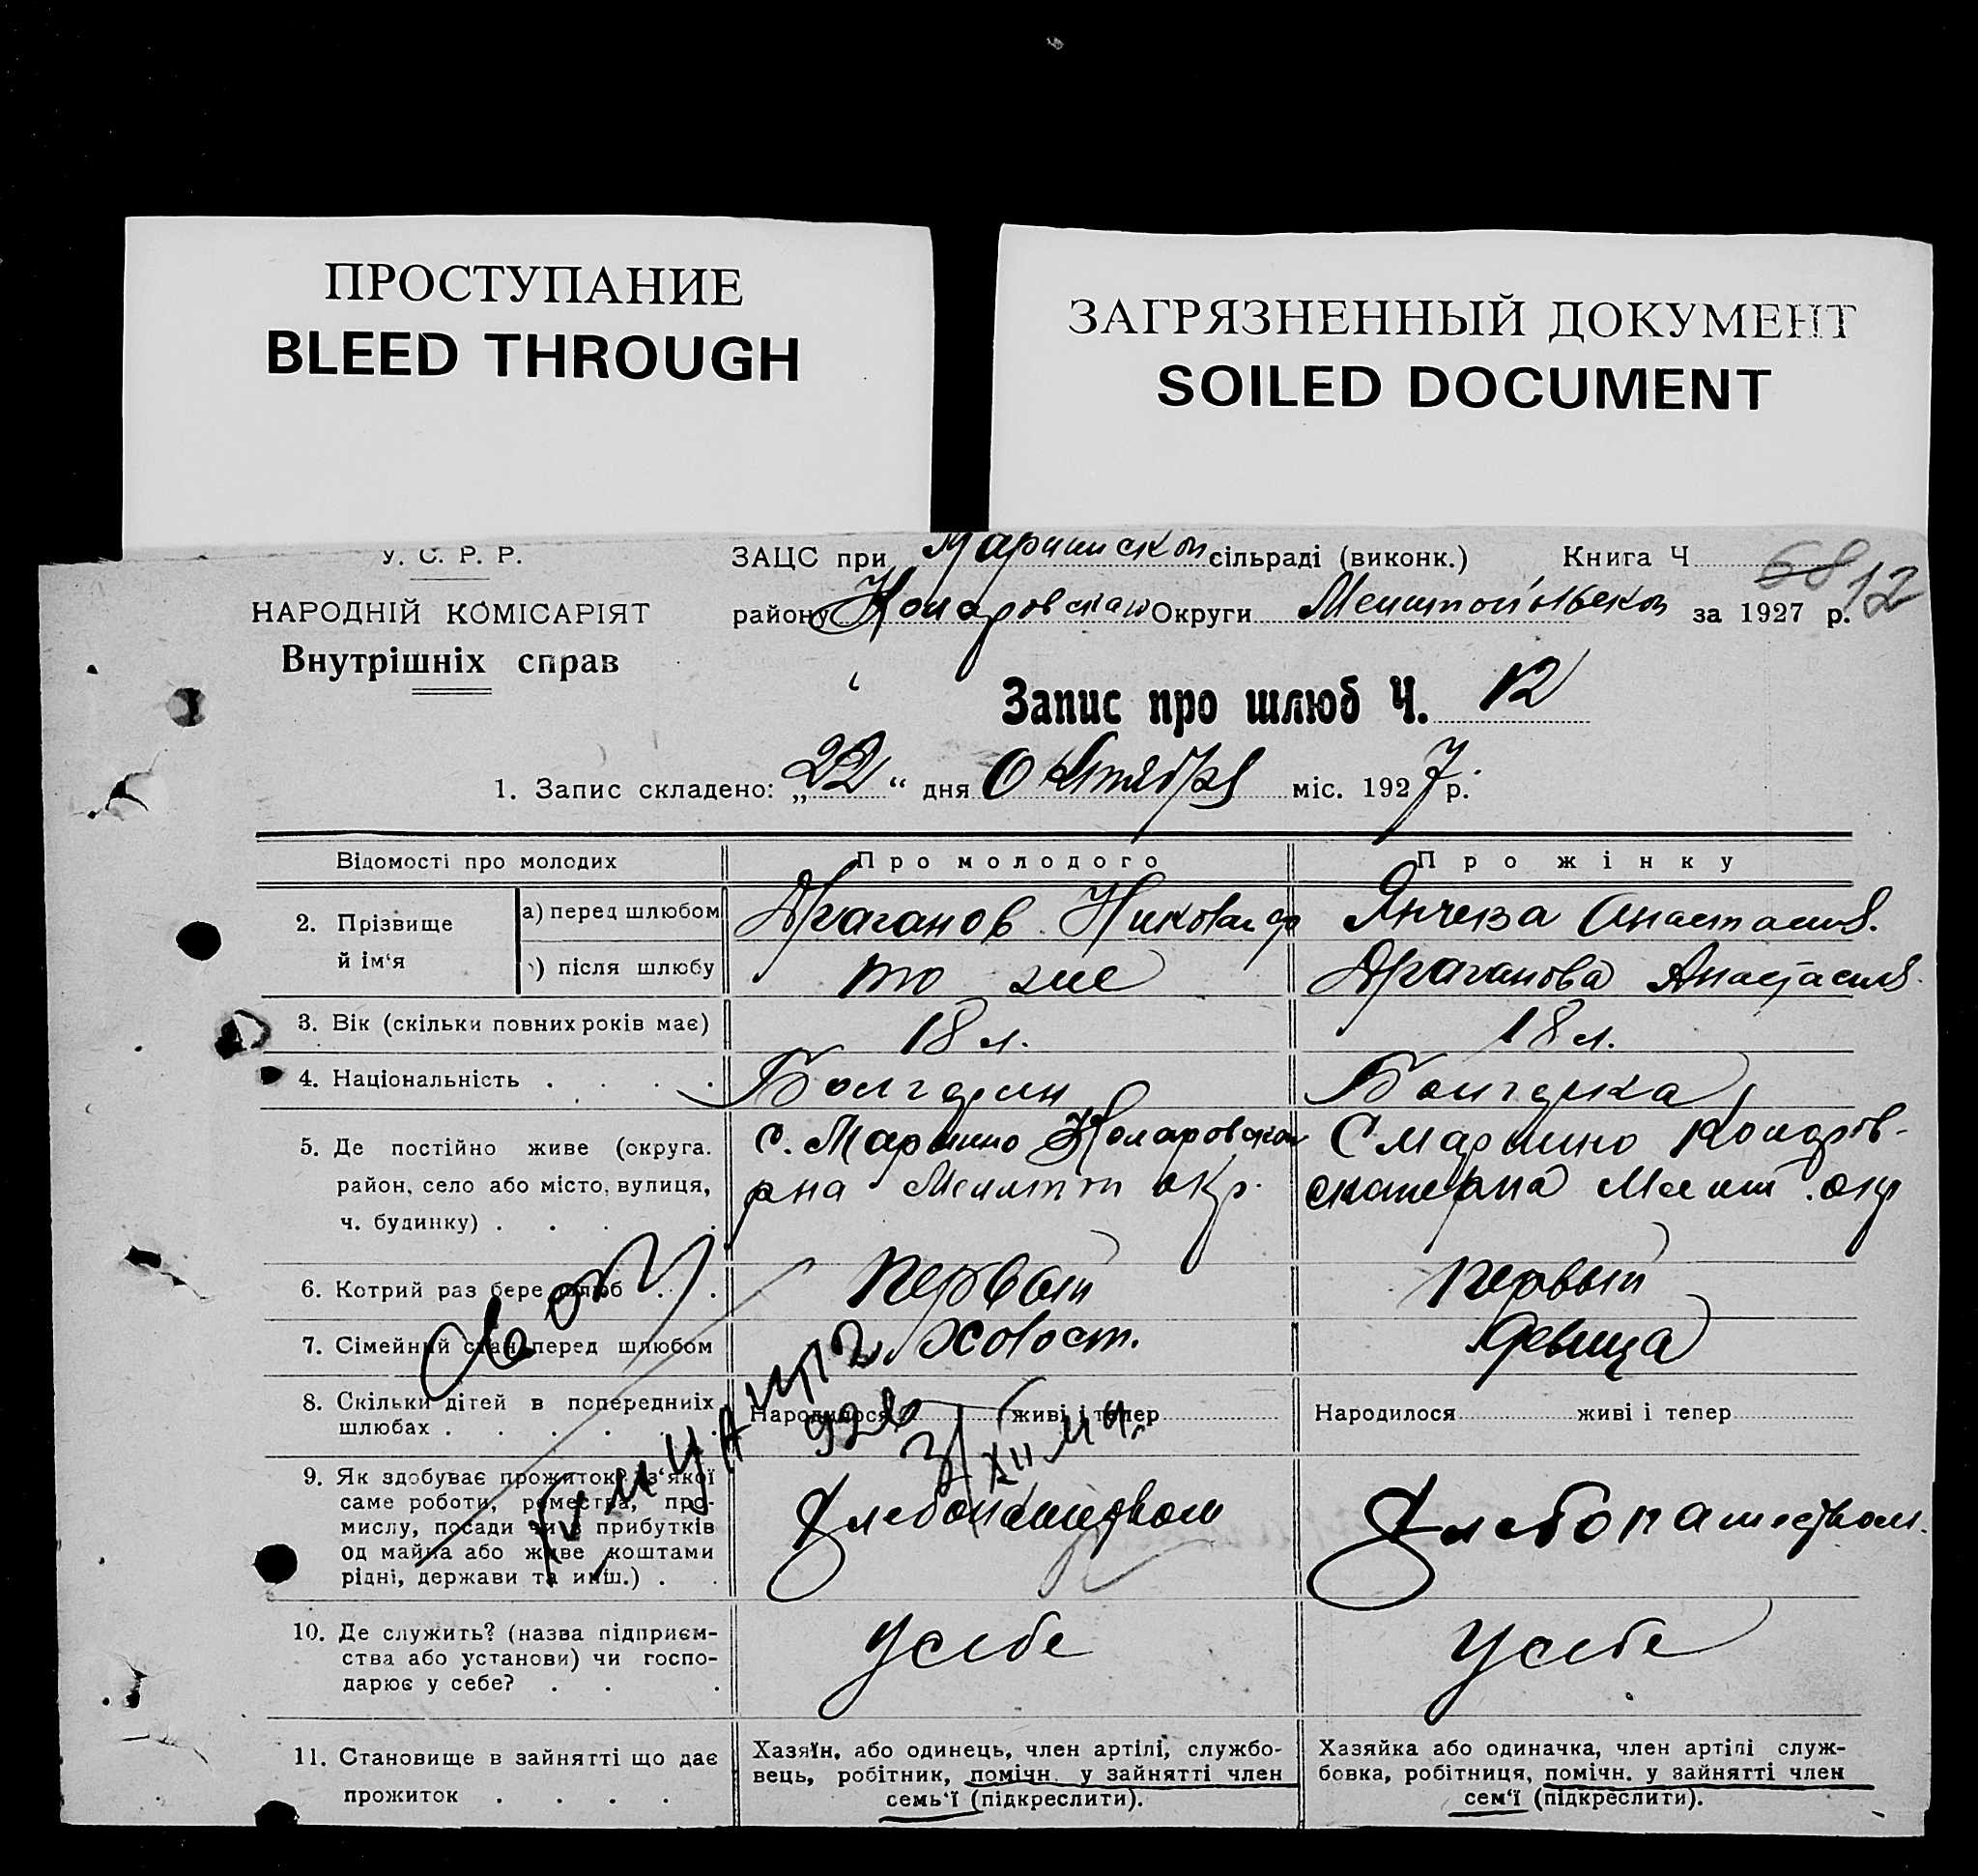 ПРОСТУПАНИЕ
BLEED THROUGH
ЗАГРЯЗНЕННЫЙ ДОКУМЕНТ
SOILED DOCUMENT
У. С. Р. Р.
НАРОДНІЙ КОМІСАРІЯТ
Внутрішніх справ
ЗАЦС при сільраді (виконк.) Книга Ч 68 12
району Округи за 1927 р.
Запис про шлюб Ч. 12
1. Запис складено: „22“ дня Октября міс. 1927 р.
Відомості про молодих Про молодого Про жінку
2. Прізвище й ім'я
а) перед шлюбом Драганов Николай Янчева Анастасия
) після шлюбу то же Драганова Анастасия
3. Вік (скільки повних років має) 18 л. 18 л.
4. Національність . . . . Болгарин Болгарка
5. Де постійно живе (округа. с. Марьино Коларовскаго С Марьино Коларов-
район, село або місто, вулиця, рна Мелит окр. рна Мелит. окр
ч. будинку) . . . .
6. Котрий раз бере шлюб . . Первый Первый
7. Сімейний стан перед шлюбом Холост. Девица
8. Скільки дітей в попередніх Народилося живі і тепер Народилося живі і тепер
шлюбах . . . . . .
9. Як здобуває прожиток? (з'якої
саме роботи, ремества, про-
мислу, посади чи з прибутків Хлебопашеством Хлебопашеством.
од майна або живе коштами
рідні, держави та инш.) . .
10. Де служить? (назва підприєм-
ства або установи) чи госпо- У себе У себе
дарює у себе? . . .
11. Становище в зайнятті що дає
прожиток . . . .
Хазяїн, або одинець, член артілі, службо-
вець, робітник, помічн. у зайнятті член
семь'ї (підкреслити).
Хазяйка або одиначка, член артілі служ-
бовка, робітниця, помічн. у зайнятті член
сем'ї (підкреслити).